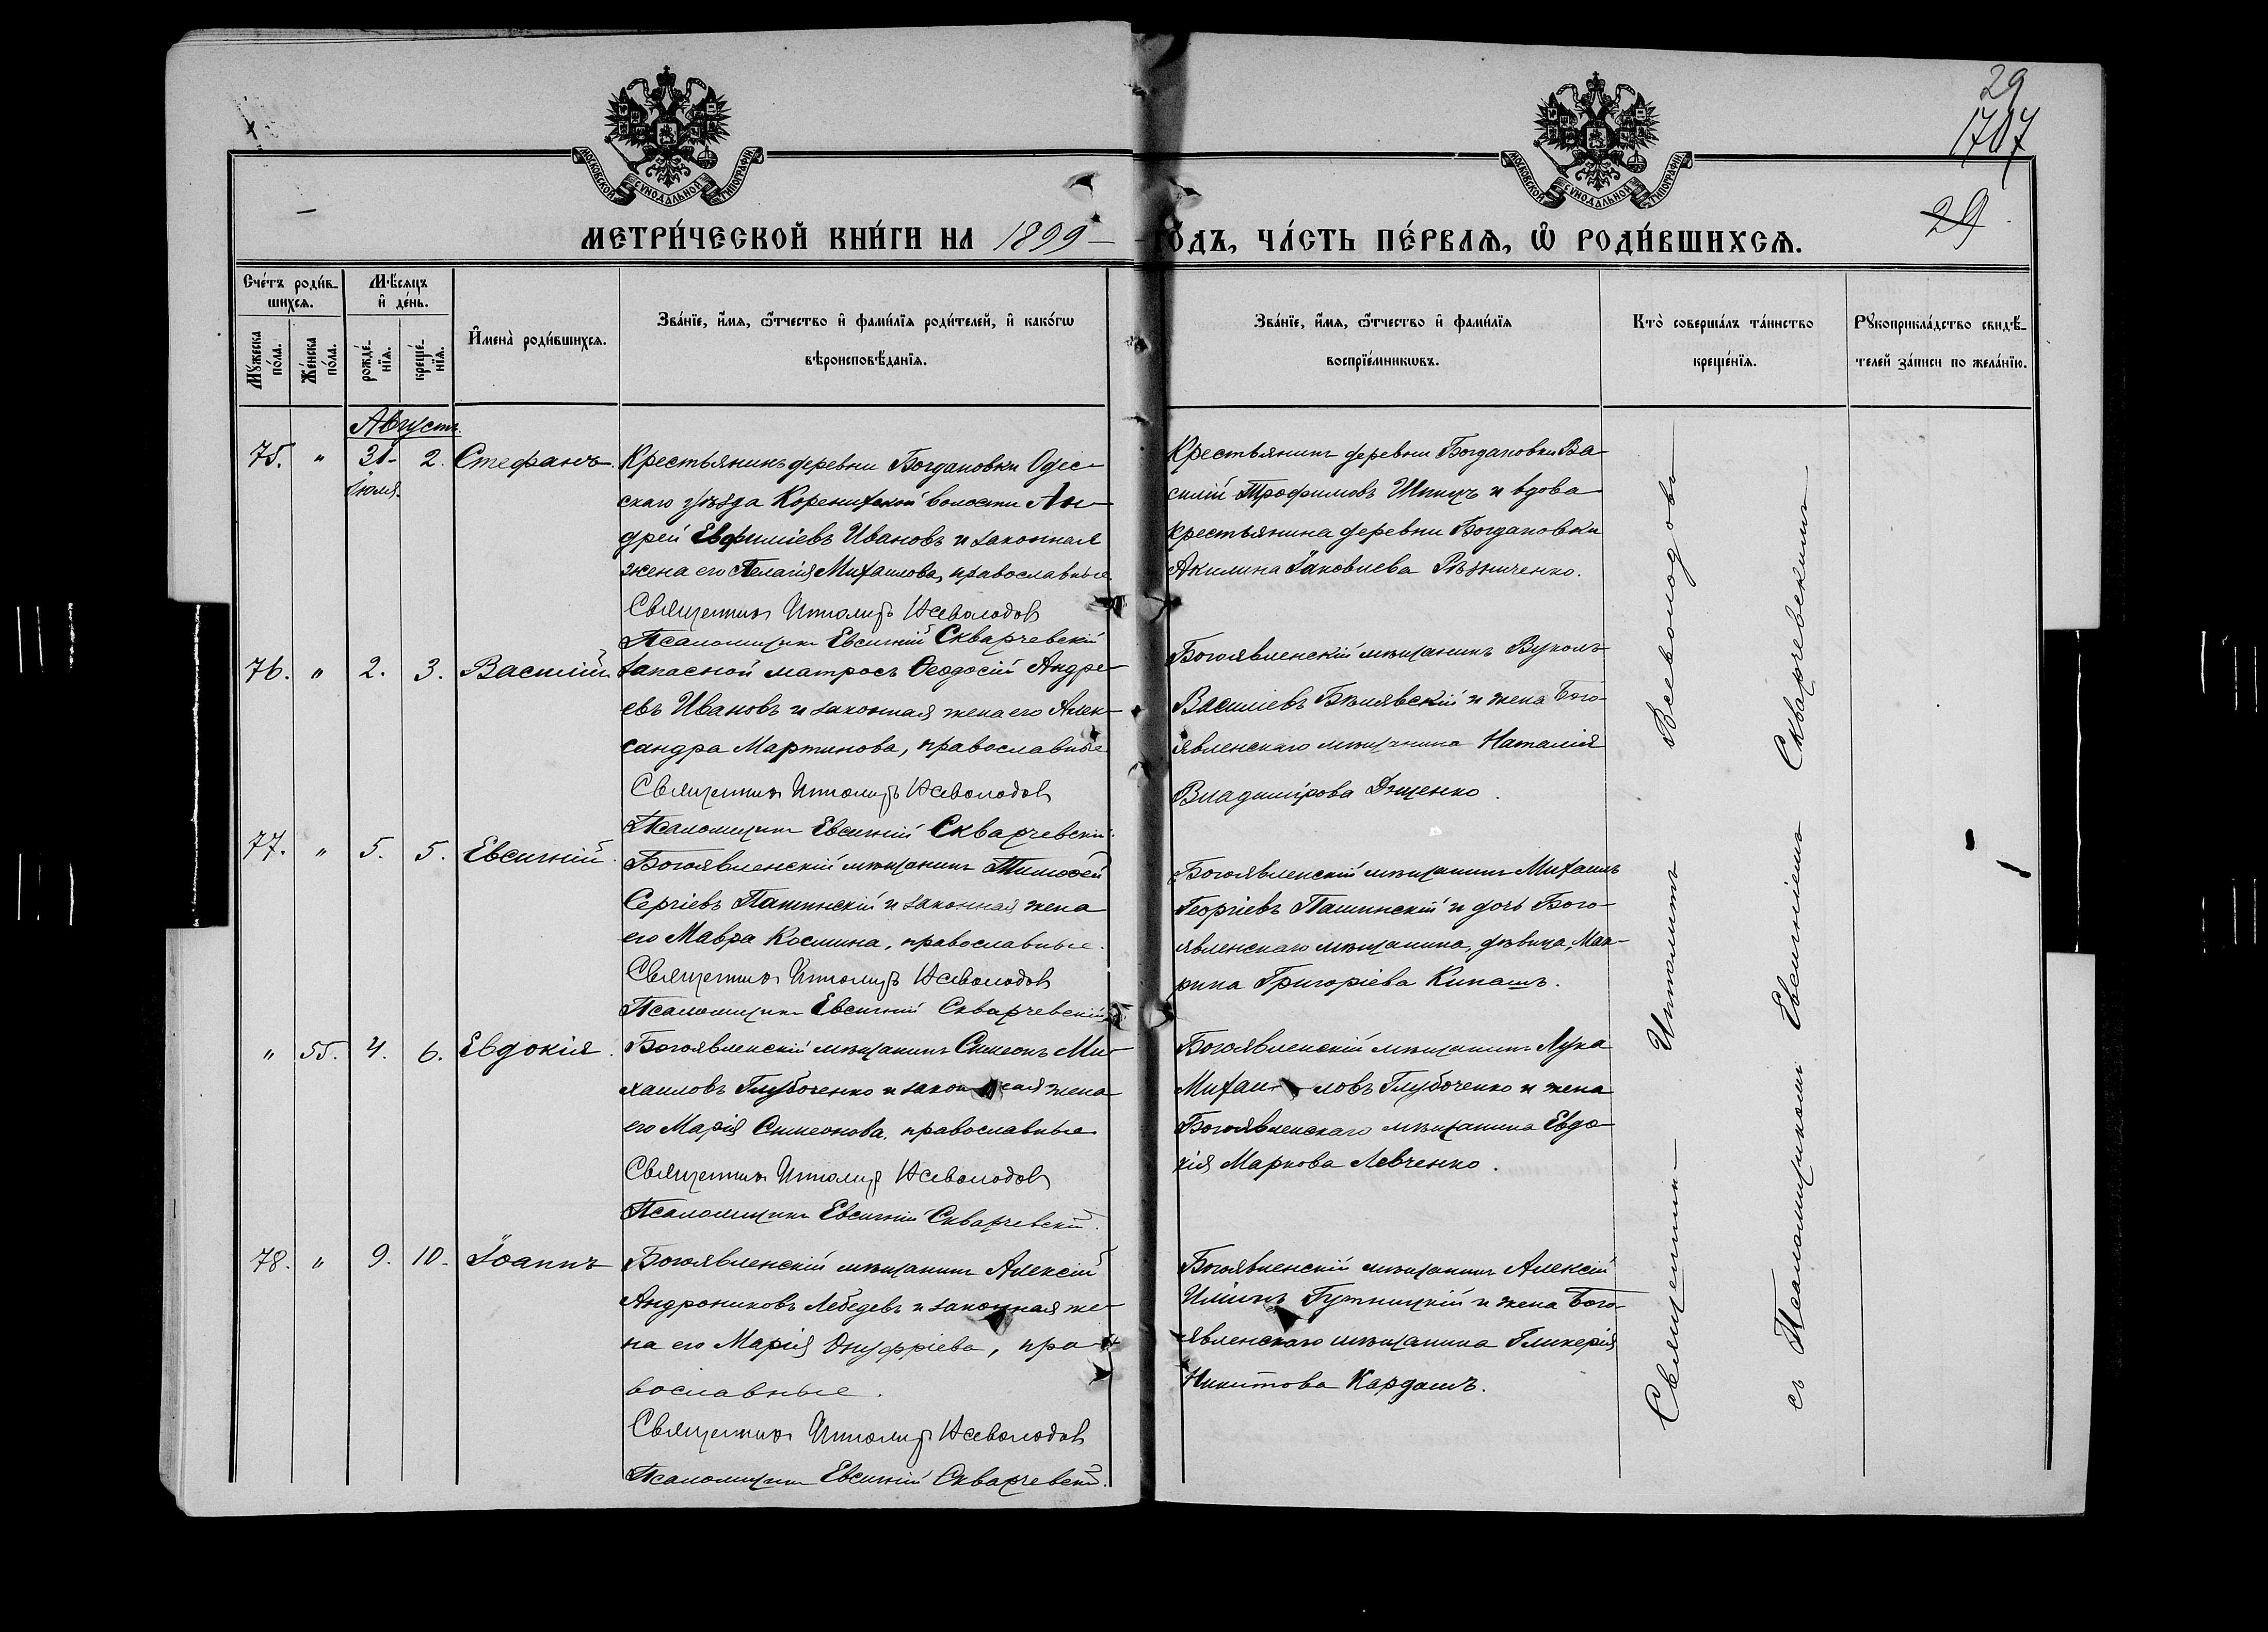 29
1707
29
МОСКОВСКОЙ СУНОДАЛЬНОЙ ТИПОГРАФІИ
МОСКОВСКОЙ СУНОДАЛЬНОЙ ТИПОГРАФІИ
МЕТРИ́ЧЕСКОЙ КНИ́ГИ НА 1899 ГОДЪ, ЧА́СТЬ ПЕ́РВАѦ, Ѿ РОДИ́ВШИХСѦ.
Сче́тъ роди́в-
шихсѧ.
Мѣ́сѧцъ
и҆ де́нь.
Мꙋ́жеска по́ла.
Же́нска по́ла.
рожде́-
нїѧ.
креще́-
нїѧ.
И҆мена̀ роди́вшихсѧ.
Зва́нїе, и҆́мѧ, ѻ҆́тчество и҆ фами́лїѧ роди́телей, и҆ како́гѡ
вѣроисповѣ́данїѧ.
Зва́нїе, и҆́мѧ, ѻ҆́тчество и҆ фами́лїѧ
воспрїе́мникѡвъ.
Кто̀ соверша́лъ та́инство
креще́нїѧ.
Рꙋкоприкла́дство свидѣ́-
телей за́писи по жела́нїю.
Августъ.
75. " 31- 2. Стефанъ. Крестьянинъ деревни Богдановки Одес-
Іюля.
скаго уѣзда Коренихской волости Ан-
дрей Евфиміевъ Ивановъ и законная
жена его Пелагія Михаилова, православные
Священникъ Ипполитъ Всеволодовъ
Псаломщикъ Евсигній Скварчевскій
Крестьянинъ деревни Богдановки Ва-
силій Трофимовъ и вдова
крестьянина деревни Богдановки
Акилина Іаковлева Рѣзниченко.
76. " 2. 3. Василій. Запасной матросъ Ѳеодосій Андре-
евъ Ивановъ и законная жена его Алек-
сандра Мартинова, православные
Священникъ Ипполитъ Всеволодовъ
Псаломщикъ Евсигній Скварчевскій.
Богоявленскій мѣщанинъ Вуколъ
Василіевъ Бѣлявскій и жена Бого-
явленскаго мѣщанина Наталія
Владимірова
77. " 5. 5. Евсигній. Богоявленскій мѣщанинъ Тимоѳей
Сергіевъ Пашинскій и законная жена
его Мавра Космина, православные.
Священникъ Ипполитъ Всеволодовъ
Псаломщикъ Евсигній Скварчевскій
Богоявленскій мѣщанинъ Михаилъ
Георгіевъ Пашинскій и дочь Бого-
явленскаго мѣщанина, дѣвица, Мак-
рина Григоріева Кипашъ.
" 55. 4. 6. Евдокія. Богоявленскій мѣщанинъ Симеонъ Ми-
хаиловъ Глубоченко и законная жена
его Марія Симеонова, православные
Священникъ Ипполитъ Всеволодовъ
Псаломщикъ Евсигній Скварчевскій.
Богоявленскій мѣщанинъ Лука
Михаиловъ Глубоченко и жена
Богоявленскаго мѣщанина Евдо-
кія Маркова Левченко.
78. " 9. 10. Іоаннъ Богоявленскій мѣщанинъ Алексій
Андрониковъ Лебедевъ и законная же-
на его Марія Онуфріева, пра-
вославные.
Священникъ Ипполитъ Всеволодовъ
Псаломщикъ Евсигній Скварчевскій.
Богоявленскій мѣщанинъ Алексій
Иліинъ Гутницкій и жена Бого-
явленскаго мѣщанина Гликерія
Никитова Кардашъ.
Священникъ Ипполитъ Всеволодовъ
съ Псаломщикомъ Евсигніемъ Скварчевскимъ